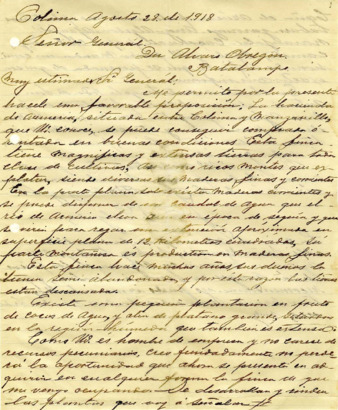 Colima Agosto 28 de 1918
Señor General
Dn Alvaro Obregón
Batalampo
Muy estimado Sr. General:
Me permito por la presente
hacerle una favorable proposición. La hacienda
de Armería, situada entre Colima y Manzanillo,
que Ud. conoce, se puede conseguir comprada ó
en buenas condiciones. Esta finca
tiene magníficos y extensos
montes que
finas y corrientes
En la parte plana maderas corrientes y
se puede disponer de un caudal de agua que el
río de Armería en época de y que
regar una extensión aproximada en
superficie plana de 12 kilometros cuadrados. La
parte montañosa es productiva en maderas finas.
Esta finca hace muchos años sus dueños la
tienen abandonada, y por esta razón las tierras
están descansadas.
Existe una pequeña plantación en fruto
de cocos de Agua, y algo de platano grande,
en la región humeda que tambien es extensa.
Como Ud. es hombre de empresa y no carece de
recursos pecuniarios, creo fundadamente no perde-
rá la oportunidad que ahora se presenta en ad-
quirir por cualquier forma la finca de que
me vengo ocupando
las plantas que voy á señalar